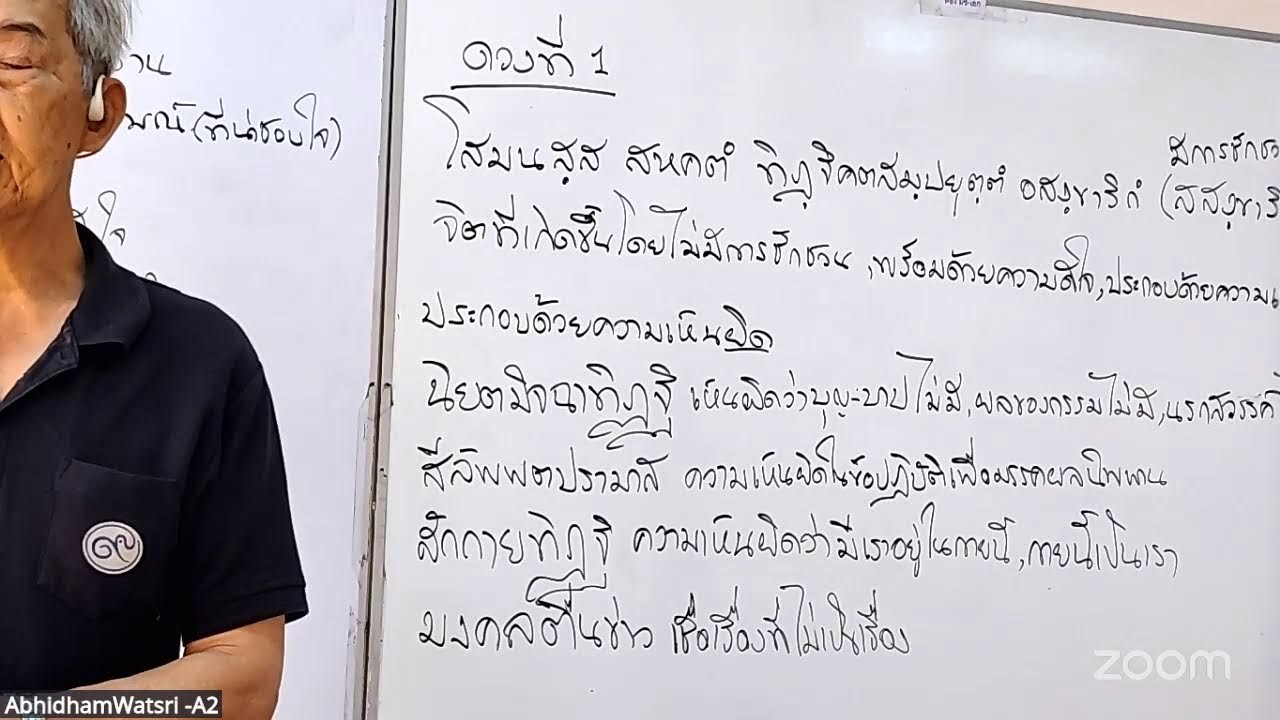 ดวงที่ 1
โสมนสฺส สหคตํ ทิฏฺฐิคตสมฺปยุตฺตํ อสงฺขาริกํ (สสงฺขาริ
มีการชักชว
จิตที่เกิดขึ้นโดยไม่มีการชักชวน, พร้อมด้วยความดีใจ, ประกอบด้วยความเ
ประกอบด้วยความเห็นผิด
นิยตมิจฉาทิฏฐิ เห็นผิดว่าบุญ-บาปไม่มี, ผลของกรรมไม่มี, นรกสวรรค์
สีลัพพตปรามาส ความเห็นผิดในข้อปฏิบัติเพื่อมรรคผลนิพพาน
สักกายทิฏฐิ ความเห็นผิดว่ามีเราอยู่ในกายนี้, กายนี้เป็นเรา
มงคลตื่นข่าว เชื่อเรื่องที่ไม่เป็นเรื่อง
(ที่น่าชอบใจ)
๙
zoom
AbhidhamWatsri -A2